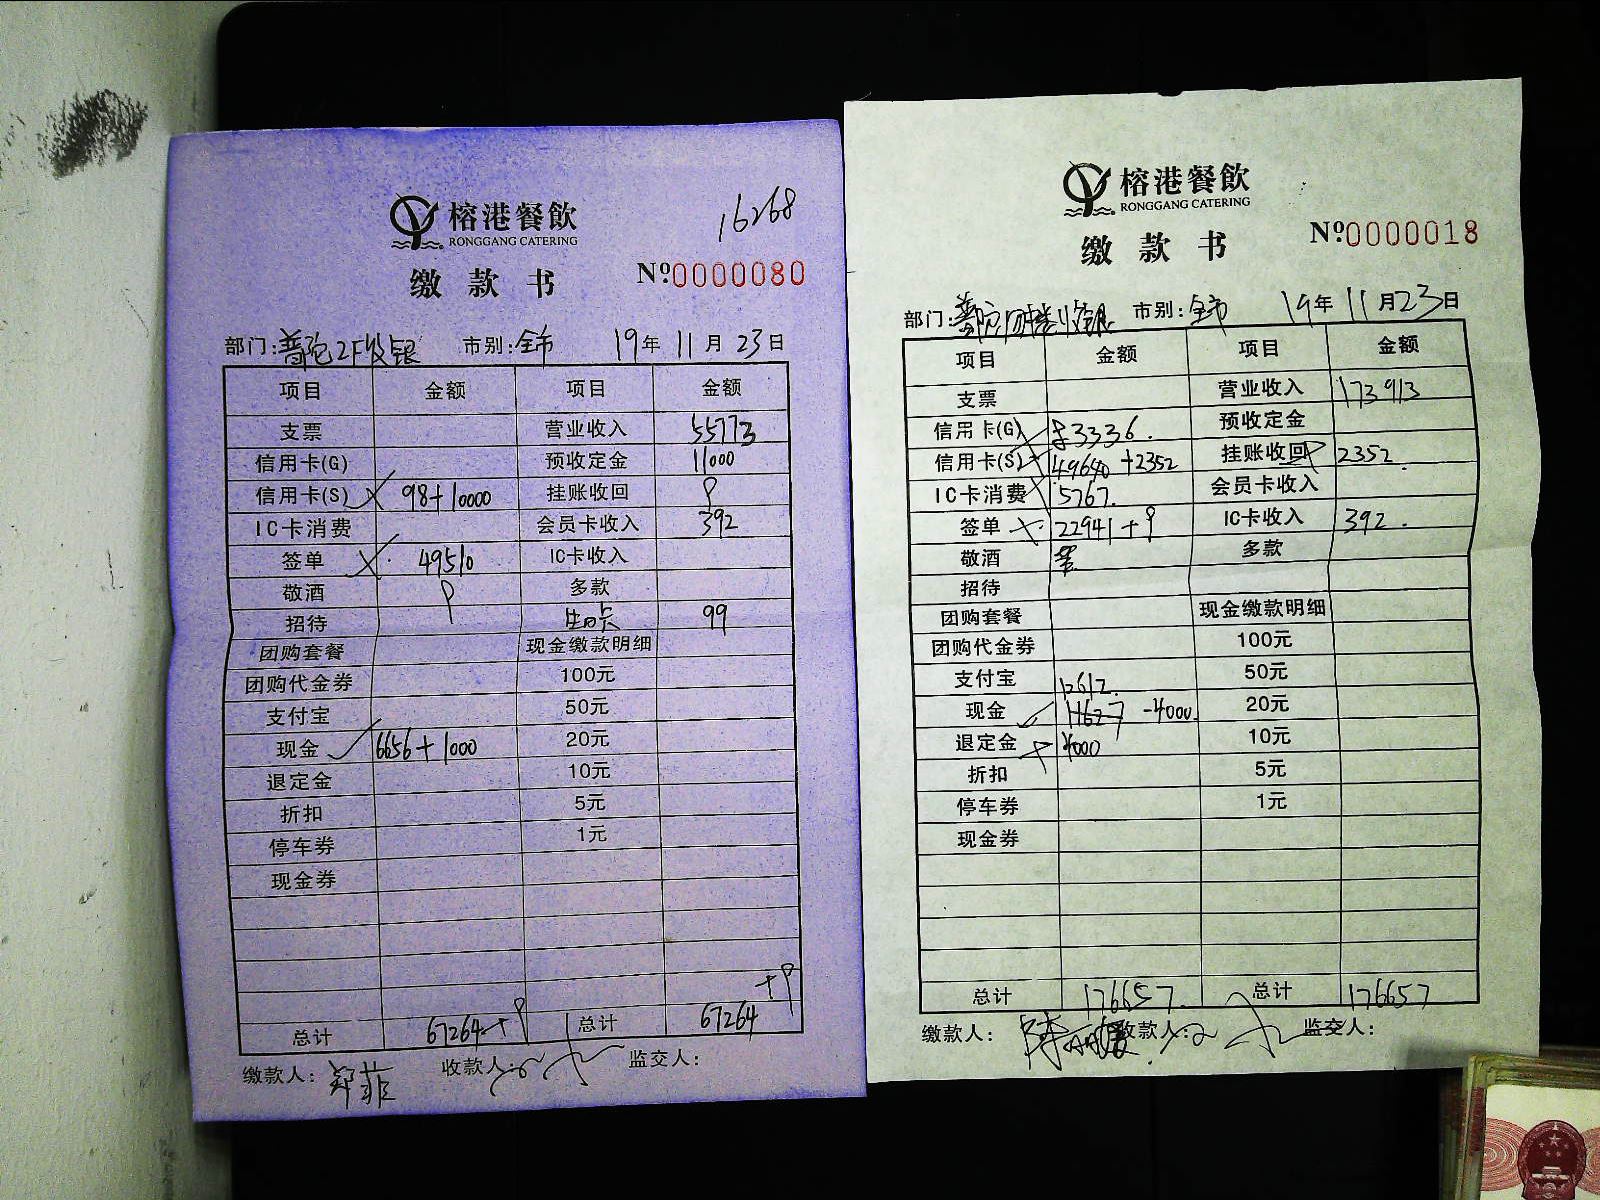 榕港餐飲
RONGGANG CATERING
16268
缴款书
№0000080
部门:普陀2F收银 市别:全市 19年11月23日
项目 金额 项目 金额
支票 营业收入 55773
信用卡(G) 预收定金 11000
信用卡(S) 98+10000 挂账收回
IC卡消费 会员卡收入 392
签单 49510 IC卡收入
敬酒 多款
招待 99
团购套餐 现金缴款明细
团购代金券 100元
支付宝 50元
现金 6656+1000 20元
退定金 10元
折扣 5元
停车券 1元
现金券
总计 67264+ 总计 67264+
缴款人:郑菲 收款人: 监交人:
榕港餐飲
RONGGANG CATERING
缴款书
№0000018
部门:普陀 收银 市别:全市 19年11月23日
项目 金额 项目 金额
支票 营业收入 173913
信用卡(G) 83336. 预收定金
信用卡(S) 49640+2352 挂账收回 2352.
IC卡消费 5767. 会员卡收入
签单 22941+ IC卡收入 392.
敬酒 多款
招待
团购套餐 现金缴款明细
团购代金券 100元
支付宝 12612. 50元
现金 11627-4000. 20元
退定金 4000 10元
折扣 5元
停车券 1元
现金券
总计 176657. 总计 176657
缴款人: 收款人: 监交人: